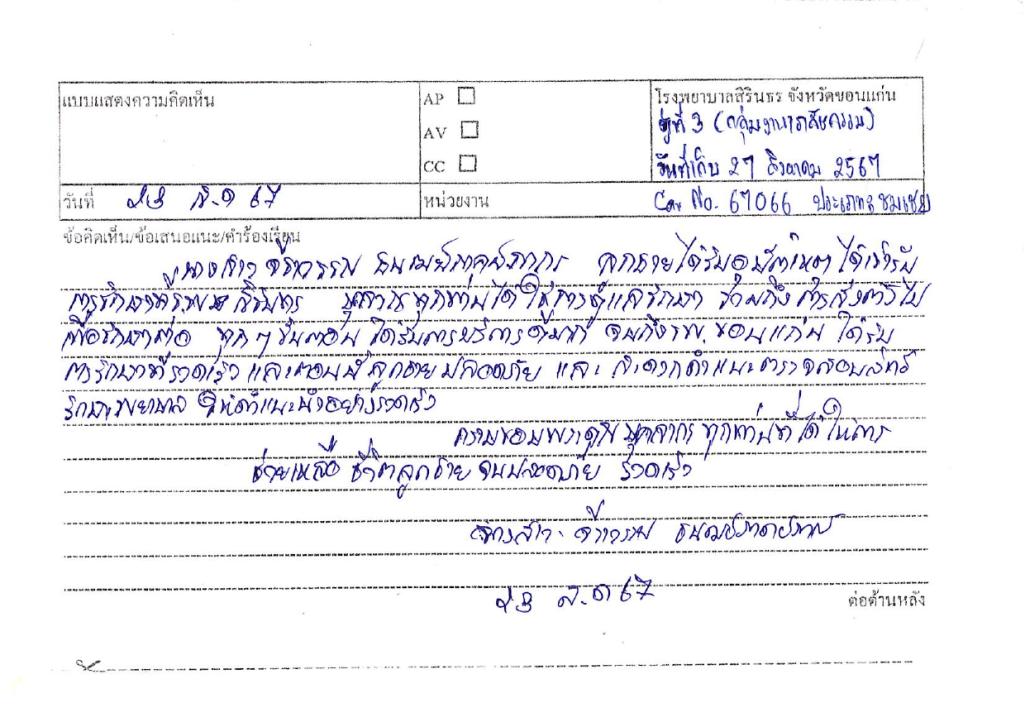 แบบแสดงความคิดเห็น
AP
AV
CC
โรงพยาบาลสิรินธร จังหวัดขอนแก่น
ตู้ที่ 3 (กลุ่มงานเภสัชกรรม)
วันที่เก็บ 27 สิงหาคม 2567
วันที่ 23 ส.ค 67
หน่วยงาน
Car No. 67066 ประเภท ชมเชย
ข้อคิดเห็น/ข้อเสนอแนะ/คำร้องเรียน
นางสาว ลูกชายได้รับอุบัติเหตุ ได้เข้ารับ
การรักษาที่ รพ. สิรินธร บุคลากรทุกท่านได้ให้การดูแลรักษา รวมถึง การส่งตัวไป
เพื่อรักษาต่อ ทุกๆขั้นตอน ได้รับการบริการดีมาก จนถึงรพ.ขอนแก่น ได้รับ
การรักษาที่รวดเร็ว และตอนนี้ลูกชายปลอดภัย และ สะดวก ตรวจสอบสิทธิ์
รักษาพยาบาล ให้คำแนะนำอย่างรวดเร็ว
กราบขอบพระคุณ บุคลากร ทุกท่านที่ได้ให้การ
ช่วยเหลือ ชีวิตลูกชาย จนปลอดภัย รวดเร็ว
นางสาว
23 ส.ค 67
ต่อด้านหลัง